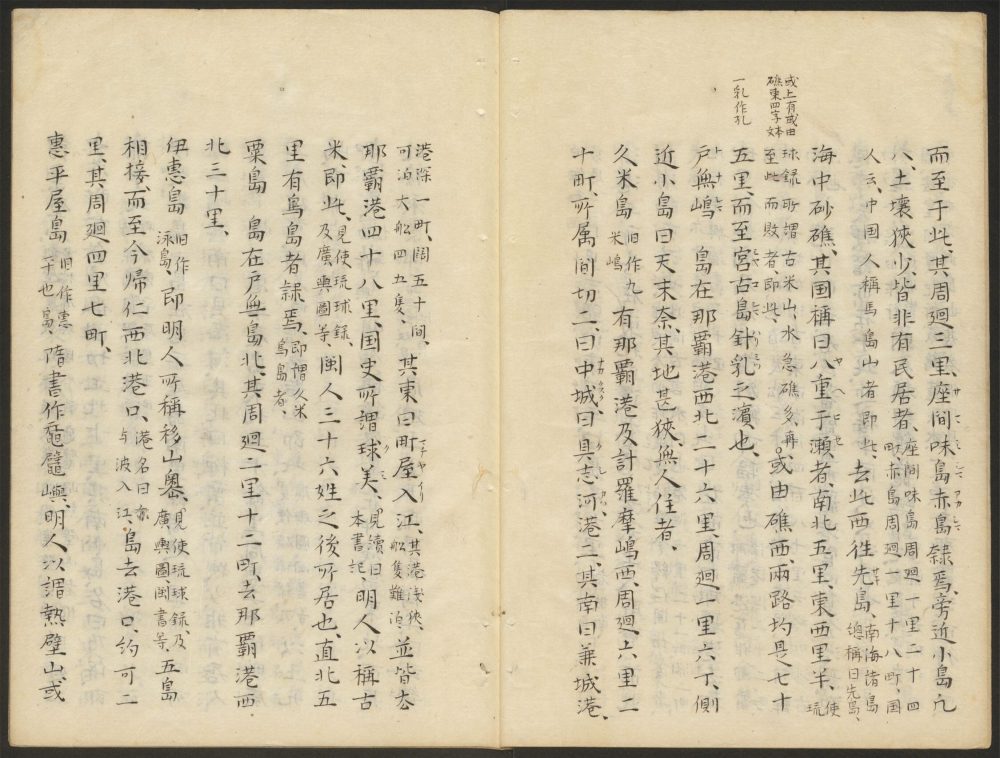 而至于此、其周廻三里、座間味島赤島隷焉、旁近小島凡
八、土壤狹少、皆非有民居者、座間味島周廻一里二十四町、赤島周廻一里十八町、国
人云、中国人稱馬島山者即此、去此西往先島、南海諸島總稱曰先島、
海中砂礁、其国稱曰八重干瀬者、南北五里東西里半、使琉
球録所謂古米山、水急礁多、再至此、而敗者、即此、或由礁西、兩路均是七十
或上有或由
礁東四字
五里、而至宮古島針乳之濱也、
一乳作孔
戶無嶋 島在那覇港西北二十六里、周廻一里六丁、側
近小島曰天末奈、其地甚狹、無人住者、
久米島 旧作九米嶋 有那覇港及計羅摩嶋西、周廻六里二
十町、所属間切二、曰中城、曰具志河港二、其南曰兼城港、
港深一町、闊五十間、可泊大船四五隻、其東曰町屋入江、其港浅狹、船隻難泊、並皆去
那覇港四十八里、国史所謂球美、見續日本書記、明人以稱古
米、即此、見使琉球録、及廣輿圖等、閩人三十六姓之後所居也、直北五
里有鳥島者、隷焉、即謂久米鳥島者、
粟島 島在戶無島北、其周廻二里十二町、去那覇港西
北三十里、
伊惠島 旧作泳島、即明人所稱移山奥、見使琉球録、及廣輿圖閩書等、五島
相接、而至今帰仁西北港口、港名曰亦与波入江、島去港口、約可二
里、其周廻四里七町、
惠平屋島 旧作惠平也島、隋書作𪓟鼊嶼、明人以謂熱壁山、或